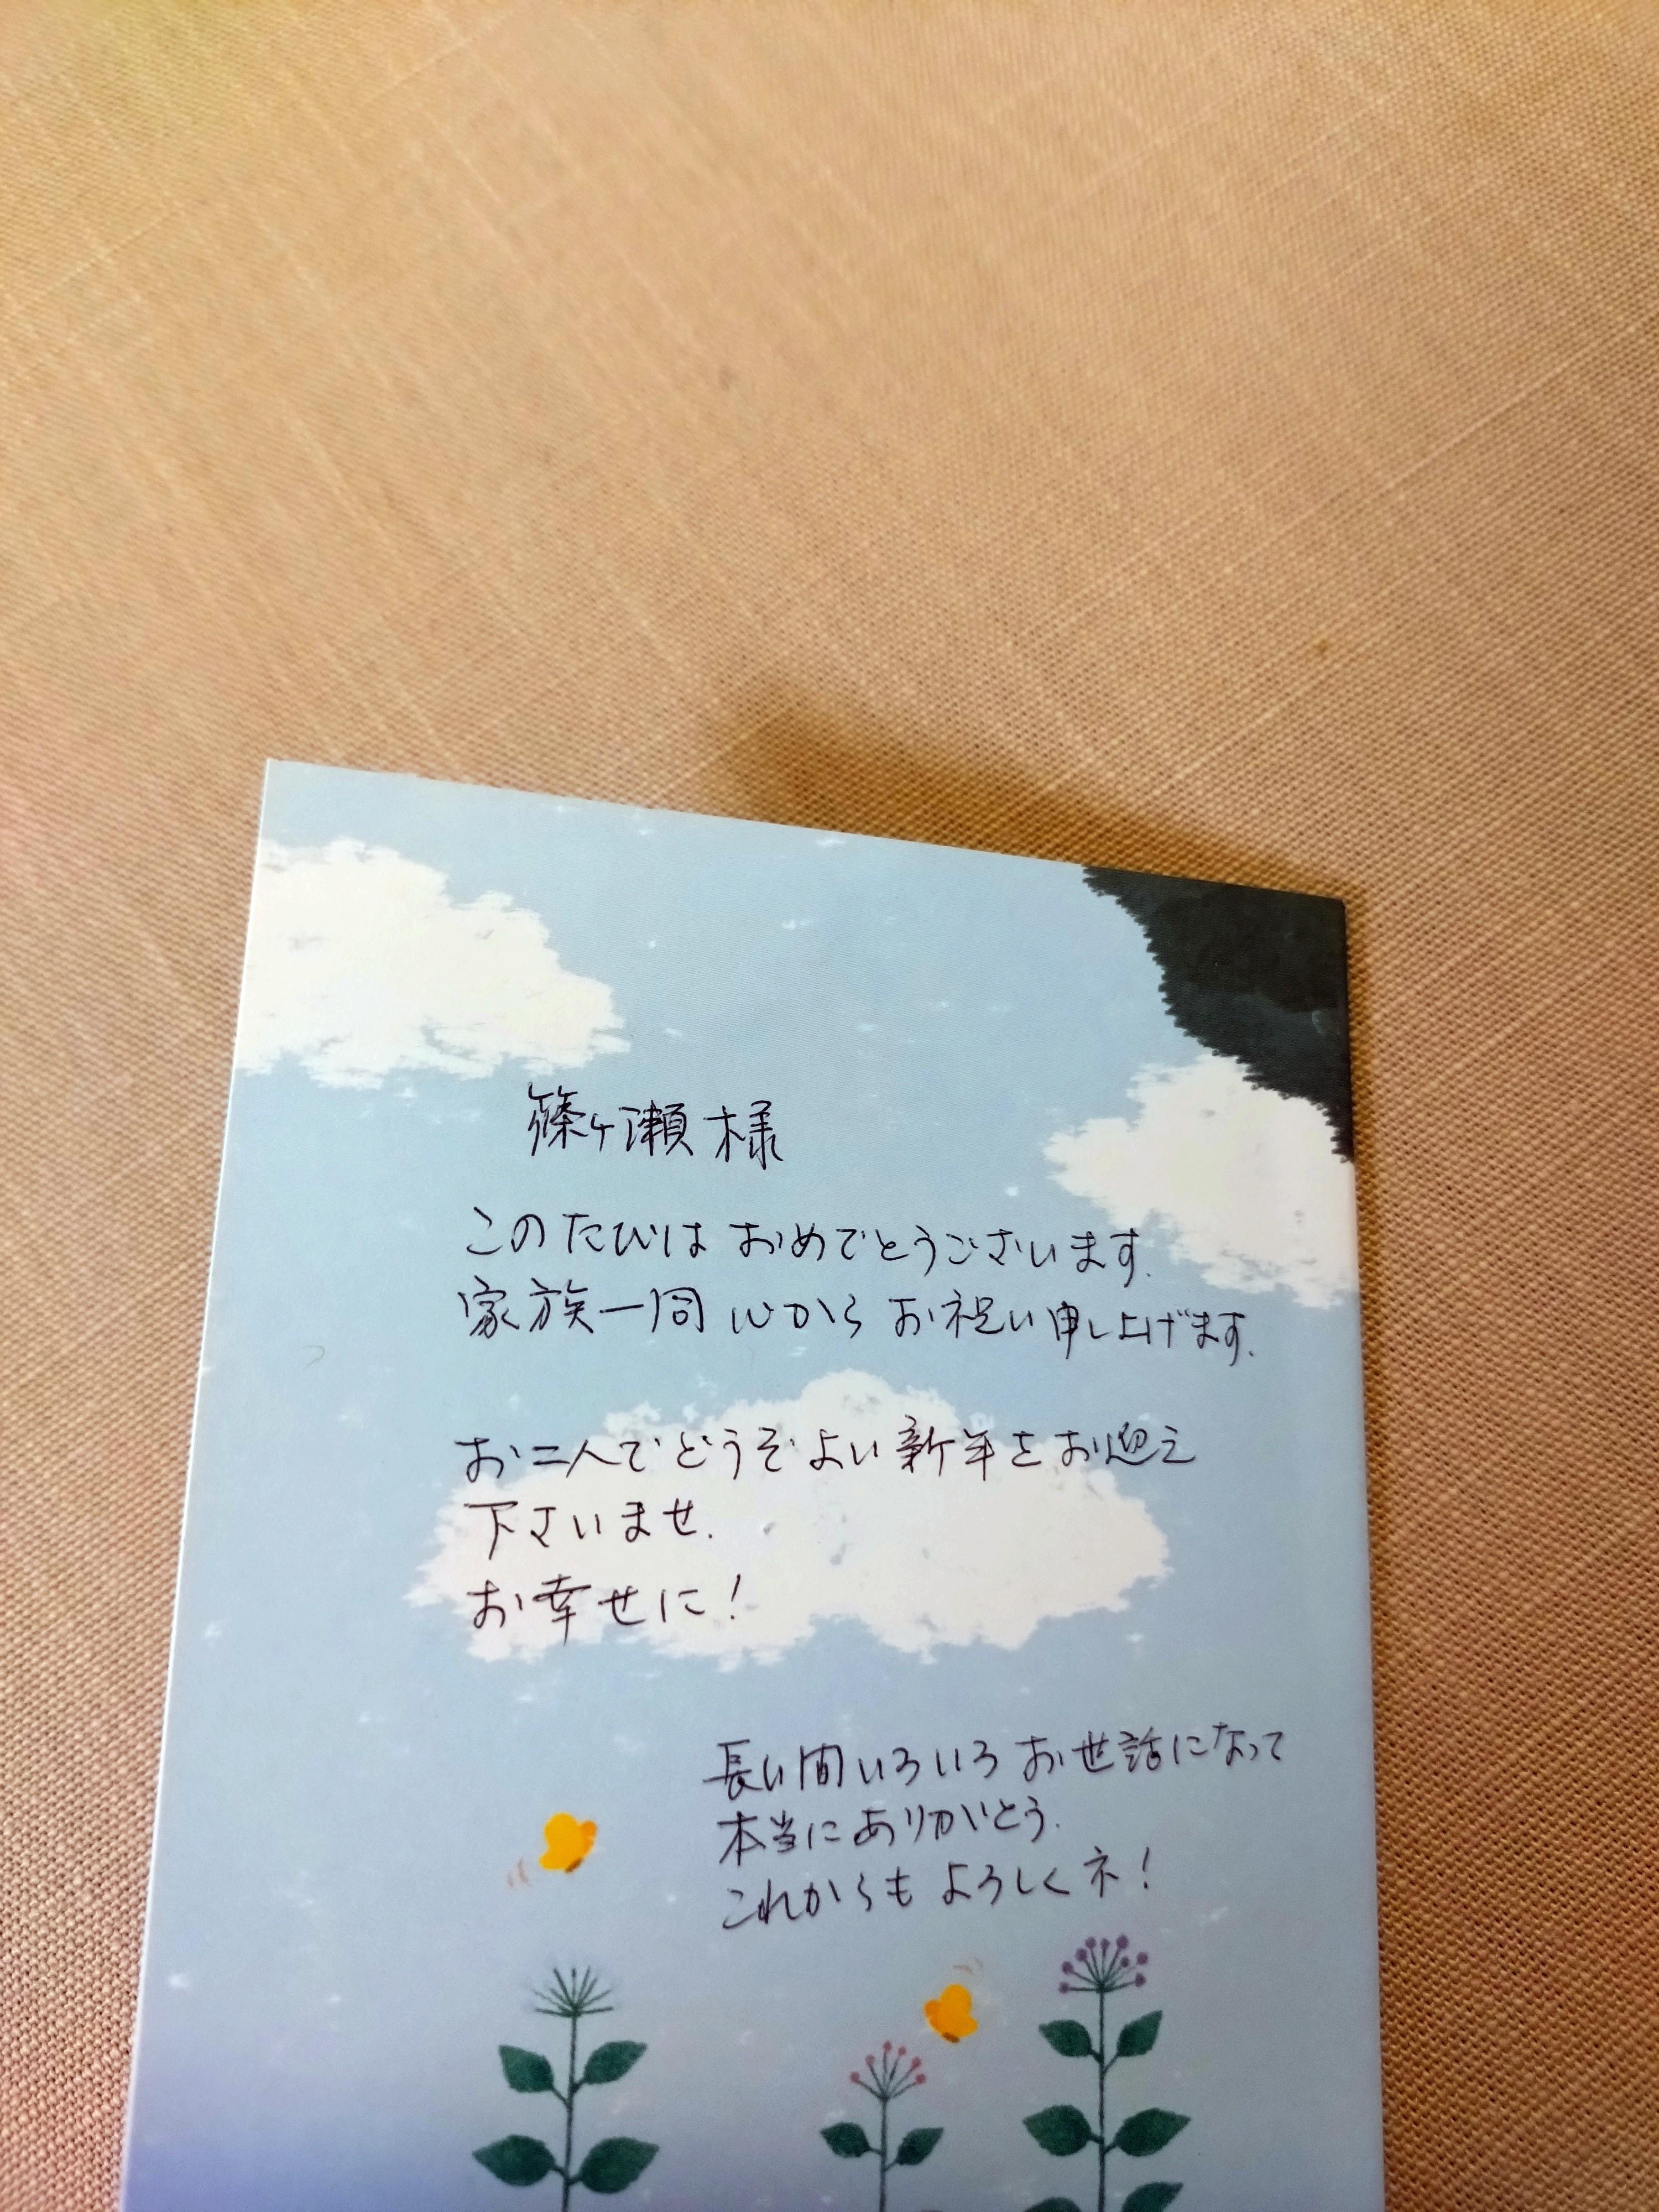 篠ヶ瀬様
このたびは おめでとうございます.
家族一同 心から お祝い申し上げます.
お二人で どうぞ よい 新年を お迎え
下さいませ.
お幸せに!
長い間いろいろ お世話になって
本当にありがとう.
これからも よろしくネ!